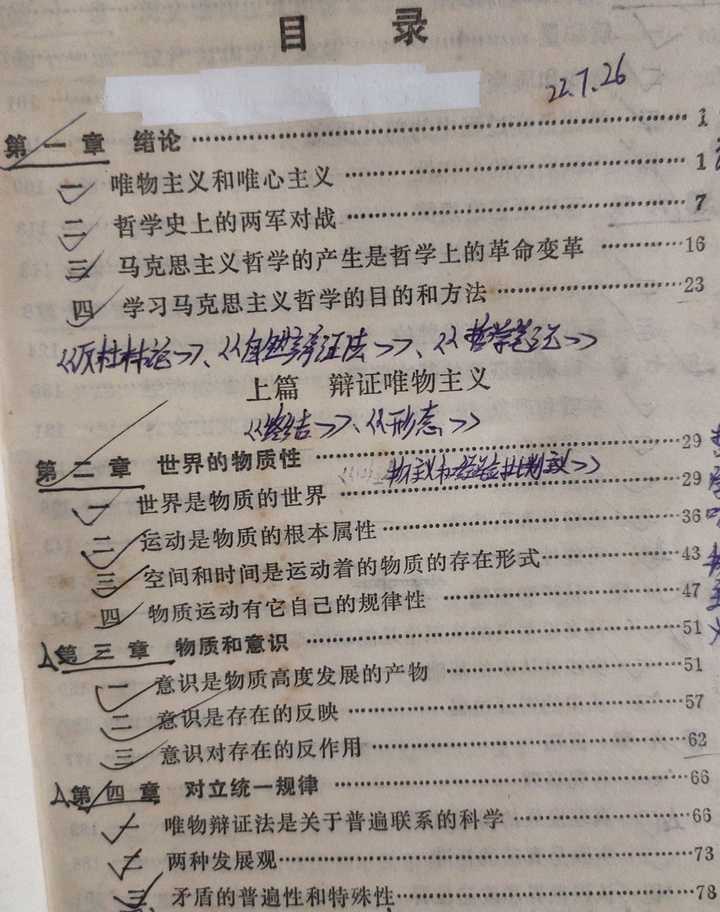 目 录
22.7.26
第一章 绪论 …… 1
一 唯物主义和唯心主义 …… 1
二 哲学史上的两军对战 …… 7
三 马克思主义哲学的产生是哲学上的革命变革 …… 16
四 学习马克思主义哲学的目的和方法 …… 23
《反杜林论》、《自然辩证法》、《哲学笔记》
上篇 辩证唯物主义
《终结》、《形态》
第二章 世界的物质性 …… 29
物主义和经验批判主义》
一 世界是物质的世界 …… 29
二 运动是物质的根本属性 …… 36
三 空间和时间是运动着的物质的存在形式 …… 43
四 物质运动有它自己的规律性 …… 47
第三章 物质和意识 …… 51
一 意识是物质高度发展的产物 …… 51
二 意识是存在的反映 …… 57
三 意识对存在的反作用 …… 62
第四章 对立统一规律 …… 66
一 唯物辩证法是关于普遍联系的科学 …… 66
二 两种发展观 …… 73
三 矛盾的普遍性和特殊性 …… 78